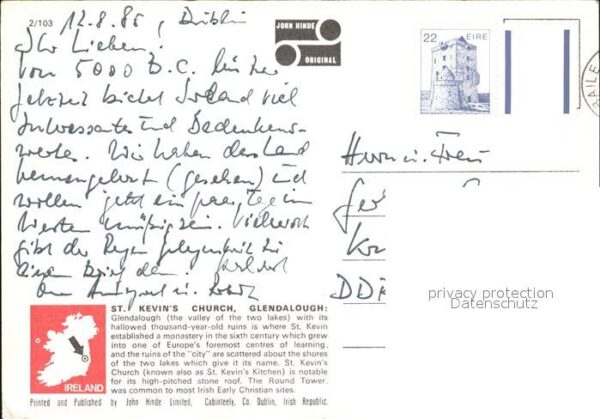 2/103
12.8.85, Dublin
Ihr Lieben!
Von 5000 B.C. bis zur
Jetztzeit bietet Irland viel
Interessantes und Bedenkens-
wertes. Wir haben das Land
(gesehen) und
wollen jetzt ein paar Tage im
Westen müßig sein. Vielleicht
gibt der Regen Gelegenheit zu
einem Brief dann. Herzlichst
JOHN HINDE
ORIGINAL
22 ÉIRE
BAILE
Herrn u. Frau
DDR
privacy protection
Datenschutz
IRELAND
ST. KEVIN'S CHURCH, GLENDALOUGH:
Glendalough (the valley of the two lakes) with its
hallowed thousand-year-old ruins is where St. Kevin
established a monastery in the sixth century which grew
into one of Europe's foremost centres of learning,
and the ruins of the "city" are scattered about the shores
of the two lakes which give it its name. St. Kevin's
Church (known also as St. Kevin's Kitchen) is notable
for its high-pitched stone roof. The Round Tower
was common to most Irish Early Christian sites.
Printed and Published by John Hinde Limited, Cabinteely, Co. Dublin, Irish Republic.